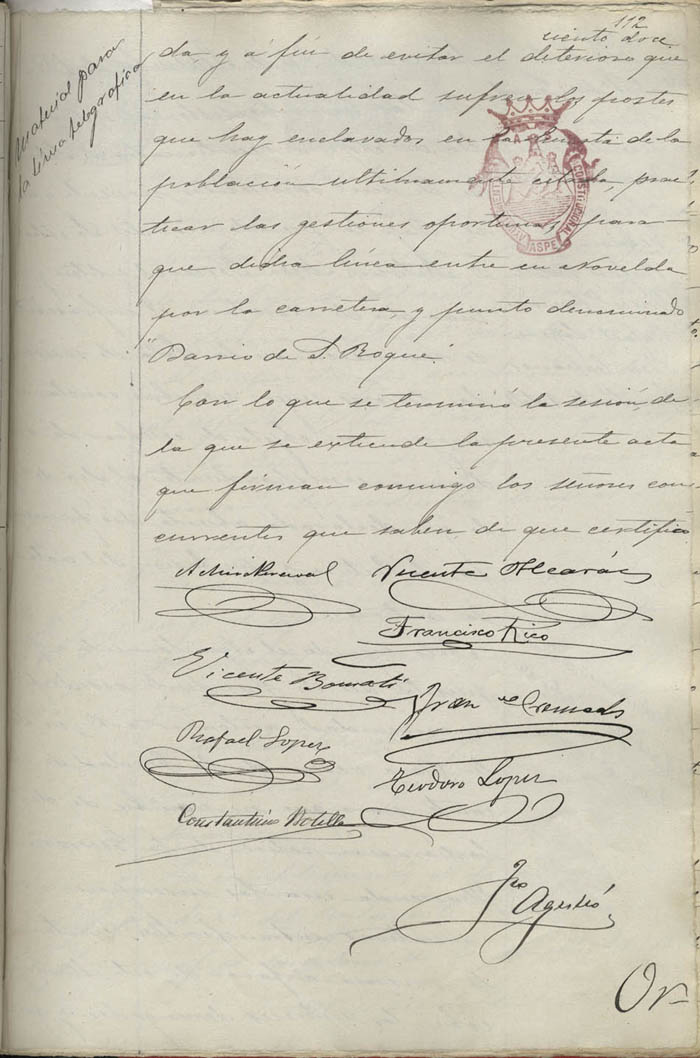 112
ciento doce
Material para
la línea telegráfica
da, y á fin de evitar el deterioro que
en la actualidad sufren los postes
que hay enclavados en la de la
población ultimamente citada, prac-
ticar las gestiones oportunas, para
que dicha línea entre en Novelda
por la carretera, y punto denominado
"Barrio de S. Roque".
Con lo que se terminó la sesión, de
la que se extiende la presente acta
que firman conmigo los señores con-
currentes que saben de que certifico
Vicente Alcaráz
Francisco Rico
Vicente
Juan de Cremades
Rafael Lopez
Teodoro Lopez
Constantino Botella
CONSTITUCIONAL
ASPE
Fco
Or-